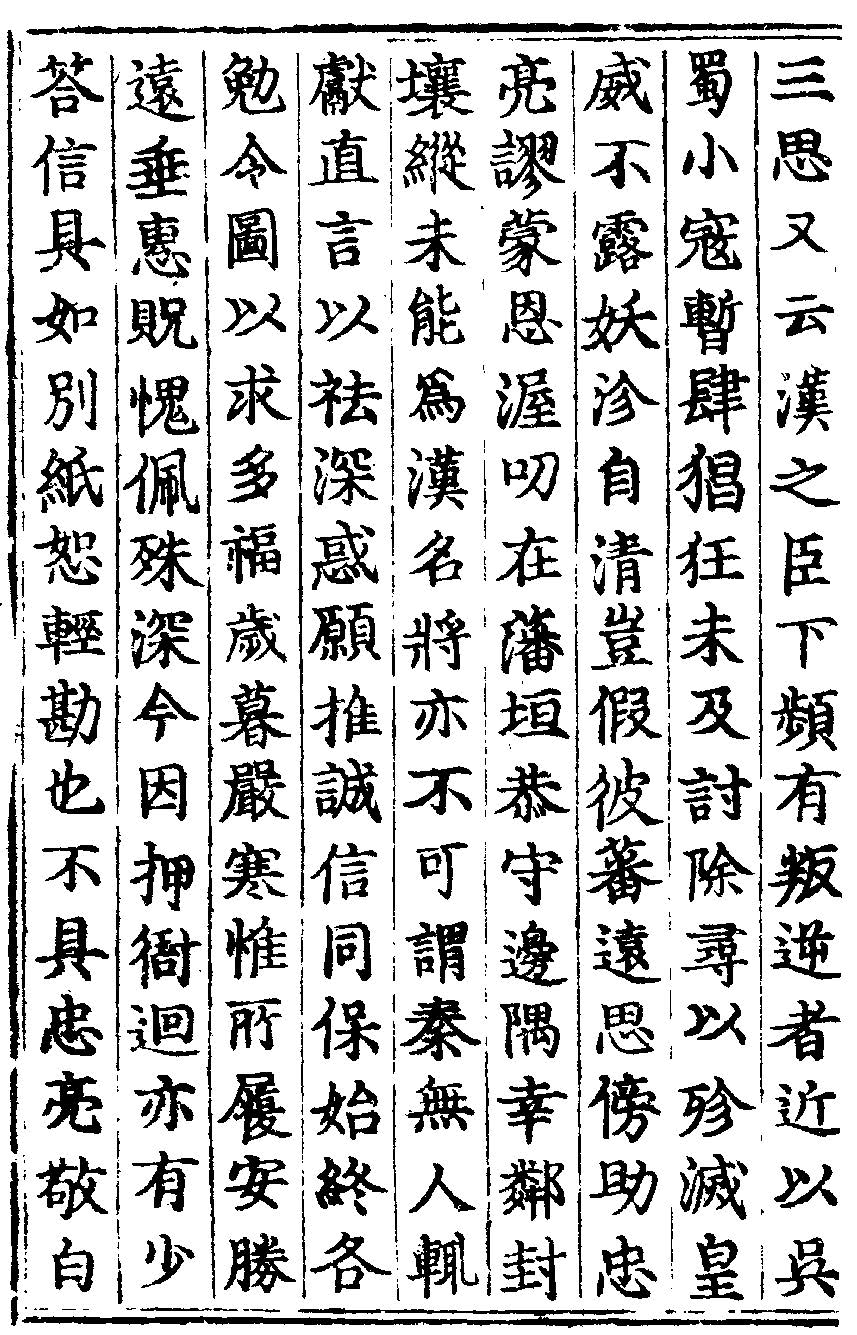 三思又云漢之臣下頻有叛逆者近以吳
蜀小寇暫肆猖狂未及討除尋以殄滅皇
威不露妖沴自清豈假彼蕃遠思傍助忠
亮謬蒙恩渥叨在藩垣恭守邊隅幸鄰封
壤縱未能爲漢名將亦不可謂秦無人輒
獻直言以祛深惑願推誠信同保始終各
勉令圖以求多福歲暮嚴寒惟所履安勝
遠垂惠貺愧佩殊深今因押衙迴亦有少
荅信具如別紙恕輕尠也不具忠亮敬白